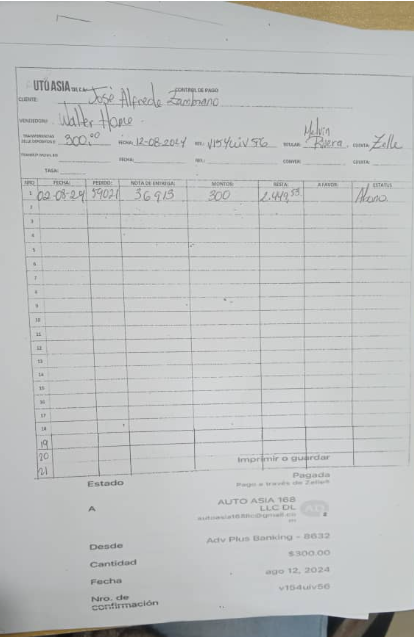 UTO ASIA
CONTROL DE PAGO
CLIENTE: José Alfredo Zambrano
VENDEDOR: Walter
300,00 FECHA: 12-08-2024 REF.: V154uiv56 TITULAR: Melvin Rivera CUENTA: Zelle
FECHA: REF.: CUENTA:
TASA:
NRO. FECHA: PEDIDO: NOTA DE ENTREGA: MONTO: RESTA: A FAVOR: ESTATUS
1 02-08-24 59021 36913 300 Abono
2
3
4
5
6
7
8
9
10
11
12
13
14
15
16
17
18
19
20
21
Imprimir o guardar
Estado Pagado
Pago a través de Zelle®
A AUTO ASIA 168
LLC DL
Desde Adv Plus Banking - 8632
Cantidad $300.00
Fecha ago 12, 2024
Nro. de confirmación v154uiv56